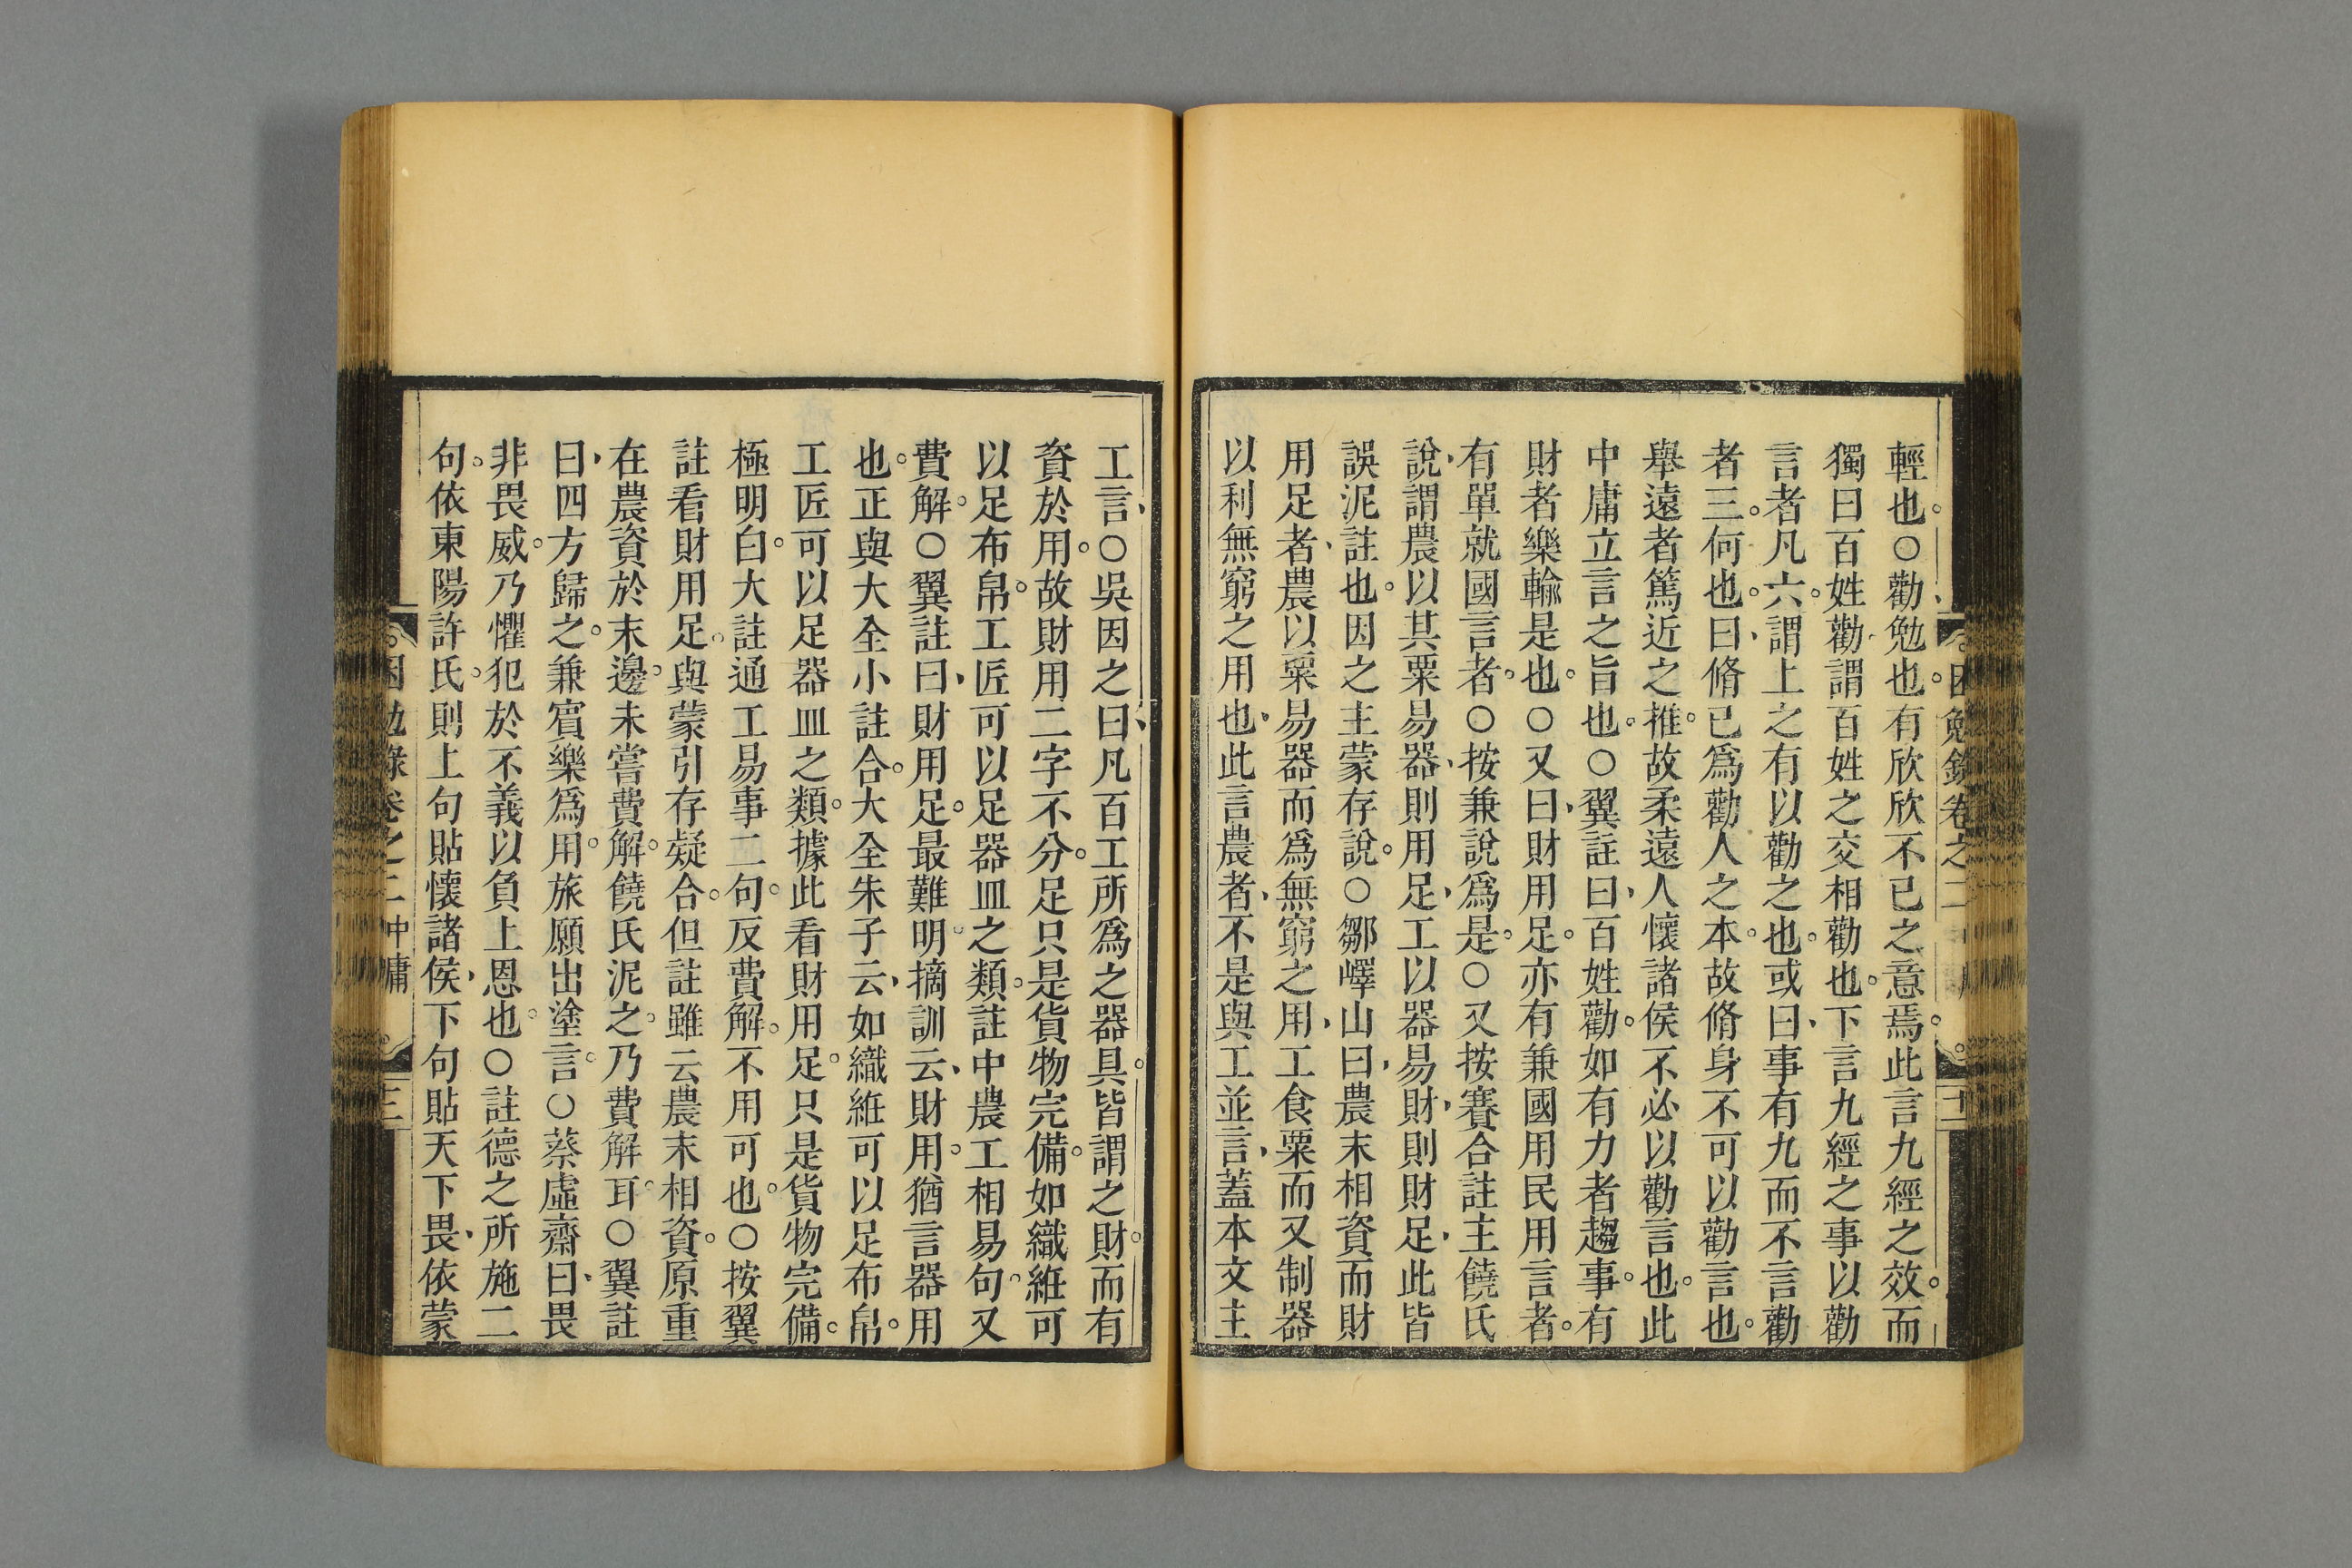 輕也。○勸勉也。有欣欣不已之意焉。此言九經之效。而
獨曰百姓勸。謂百姓之交相勸也。下言九經之事以勸
言者凡六。謂上之有以勸之也。或曰、事有九而不言勸
者三。何也。曰、脩已爲勸人之本。故脩身不可以勸言也。
舉遠者篤近之推。故柔遠人懷諸侯不必以勸言也。此
中庸立言之旨也。○翼註曰、百姓勸。如有力者趨事。有
財者樂輸是也。○又曰、財用足。亦有兼國用民用言者。
有單就國言者。○按兼說爲是。○又按賽合註主饒氏
說、謂農以其粟易器、則用足、工以器易財、則財足、此皆
誤泥註也。因之主蒙存說。○鄒嶧山曰、農末相資而財
用足者、農以粟易器而爲無窮之用、工食粟而又制器
以利無窮之用也、此言農者、不是與工並言、蓋本文主
困勉錄卷之二
工言、○吳因之曰、凡百工所爲之器具。皆謂之財。而有
資於用。故財用二字不分。足只是貨物完備。如織絍可
以足布帛。工匠可以足器皿之類。註中農工相易句。又
費解。○翼註曰、財用足。最難明。摘訓云、財用。猶言器用
也。正與大全小註合。大全朱子云、如織絍可以足布帛。
工匠可以足器皿之類。據此看財用足。只是貨物完備。
極明白。大註通工易事二句。反費解。不用可也。○按翼
註看財用足。與蒙引存疑合。但註雖云農末相資。原重
在農資於末邊。未嘗費解。饒氏泥之。乃費解耳。○翼註
曰、四方歸之。兼賓樂爲用。旅願出塗言。○蔡虛齋曰、畏
非畏威。乃懼犯於不義以負上恩也。○註德之所施二
句。依東陽許氏。則上句貼懷諸侯、下句貼天下畏、依蒙
困勉錄卷之二 中庸 三